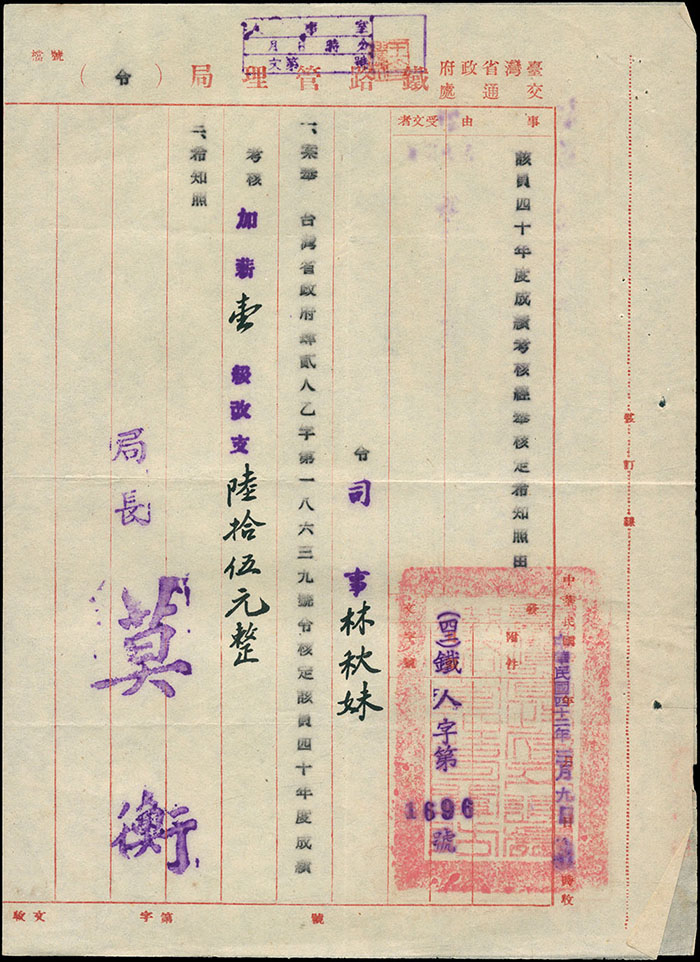 臺灣省政府交通處鐵路管理局（令）
號檔
事由
受文者
該員四十年度成績考核經奉核定希知照由
中華民國四十二年二月九日
時收
附件
發文字號
(四二)鐵人字第1696號
令 司事林秋妹
一、案奉 台灣省政府肆貳人乙字第一八六三九號令核定該員四十年度成績
考核加薪壹級改支陸拾伍元整
二、希知照
局長 莫衡
裝訂線
收文 字第 號